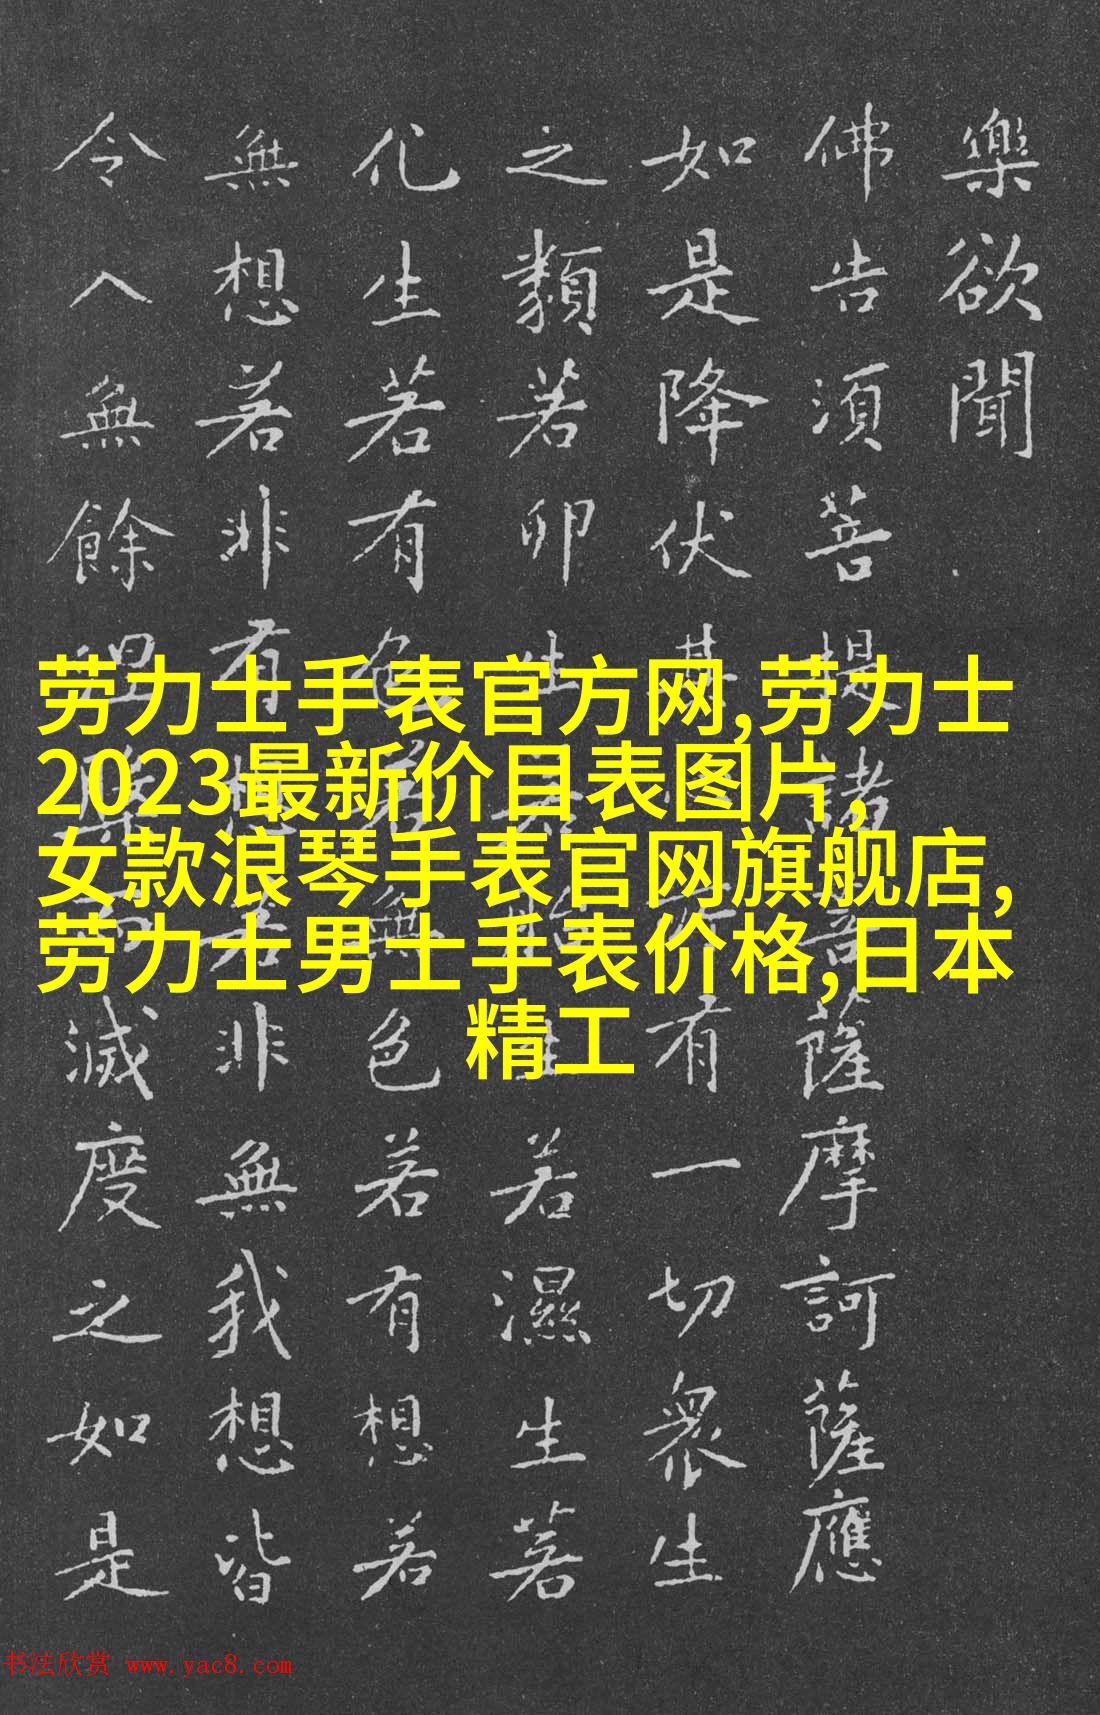 樂欲聞
佛告須菩提諸菩薩摩訶薩應
如是降伏其心所有一切衆生
之類若卵生若胎生若濕生若
化生若有色若無色若有想若
無想若非有想若非無我想皆
令入無餘涅槃而滅度之如是
劳力士手表官方网,劳力士
2023最新价目表图片,
女款浪琴手表官网旗舰店,
劳力士男士手表价格,日本
精工
书法欣赏 www.yac8.com